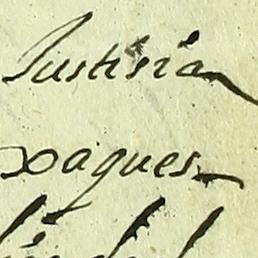 Justisia
xaques